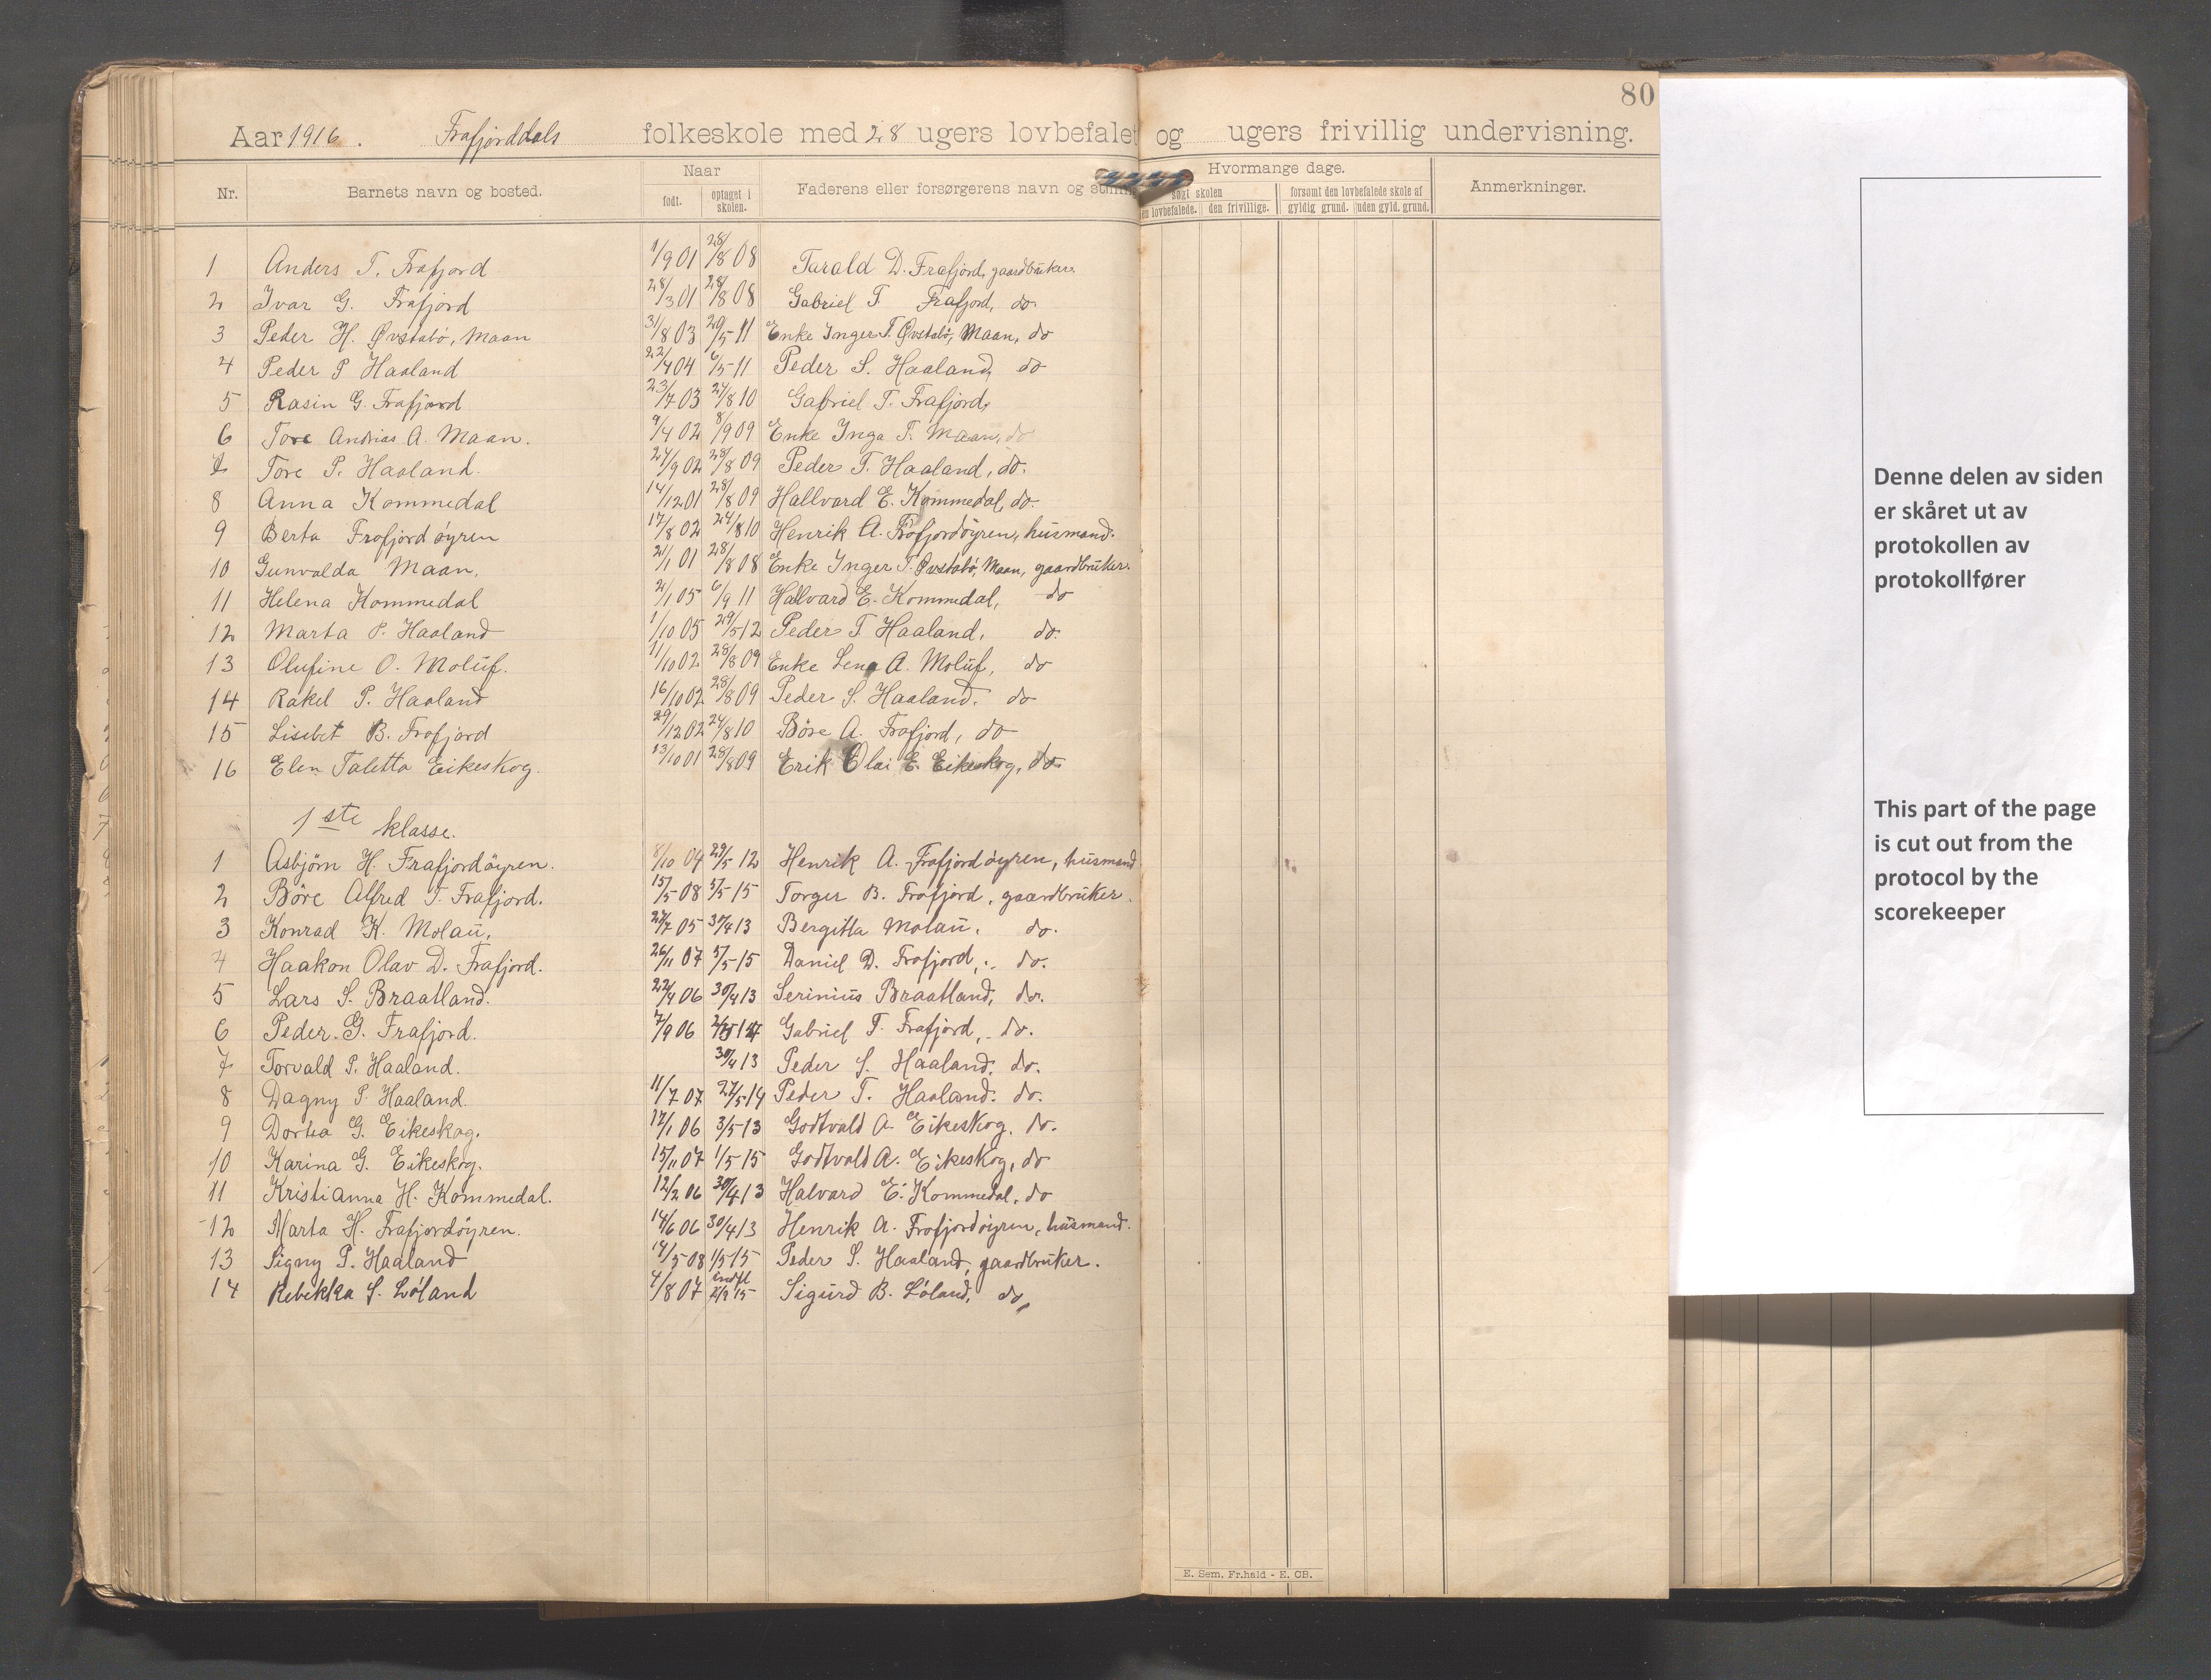 80
Aar 1916. Frafjorddals folkeskole med 28 ugers lovbefalet og ugers frivillig undervisning.
Nr. Barnets navn og bosted. Naar Faderens eller forsørgerens navn og Hvormange dage. Anmerkninger.
født. optaget i skolen. søgt skolen forsømt den lovbefalede skole af
en lovbefalede. den frivillige. gyldig grund. uden gyld. grund.
1 Anders T. Frafjord 1/9 01 28/8 08 Tarald D. Frafjord, gaardbruker.
2 Ivar G. Frafjord 28/3 01 28/8 08 Gabriel T. Frafjord, do
3 Peder H. Øvstabö, Maan 31/8 03 20/5 11 Enke Inger T. Øvstabö, Maan, do
4 Peder P Haaland 22/4 04 6/5 11 Peder S. Haaland, do
5 Rasin G. Frafjord 23/7 03 24/8 10 Gabriel T. Frafjord,
6 Tore Andrias A. Maan. 9/4 02 8/9 09 Enke Inga T. Maan, do
7 Tore P. Haaland. 24/9 02 28/8 09 Peder T. Haaland, do.
8 Anna Kommedal 14/12 01 28/8 09 Hallvard E. Kommedal, do.
9 Berta Frafjordöyren 17/8 02 24/8 10 Henrik A. Frafjordöyren, husmand.
10 Gunvalda Maan. 2/1 01 28/8 08 Enke Inger T. Øvstabö, Maan, gaardbruker.
11 Helena Kommedal 2/1 05 6/9 11 Hallvard E. Kommedal, do
12 Marta P. Haaland 1/10 05 29/5 12 Peder T. Haaland, do.
13 Olufine O. Moluf. 11/10 02 28/8 09 Enke Lena A. Moluf, do
14 Rakel P. Haaland 16/10 02 28/8 09 Peder S. Haaland. do
15 Lisebet B. Frafjord 29/12 02 24/8 10 Böre A. Frafjord, do
16 Elen Taletta Eikeskog. 13/10 01 28/8 09 Erik Olai E. Eikeskog, do
1ste klasse.
1 Asbjörn H. Frafjordöyren. 8/10 04 29/5 12 Henrik A. Frafjordöyren, husmand
2 Böre Alfred T. Frafjord. 15/5 08 5/5 15 Torger B. Frafjord, gaardbruker.
3 Konrad K. Molau. 27/7 05 30/4 13 Bergitta Molau. do.
4 Haakon Olav D. Frafjord. 26/11 07 5/5 15 Daniel D. Frafjord, do.
5 Lars S. Braatland. 22/4 06 30/4 13 Serinius Braatland, do.
6 Peder G. Frafjord. 7/9 06 Gabriel T. Frafjord, do.
7 Torvald P. Haaland. 30/4 13 Peder S. Haaland. do.
8 Dagny P. Haaland. 11/7 07 27/5 14 Peder T. Haaland. do.
9 Dortea G. Eikeskog. 17/1 06 3/5 13 Godtvald A. Eikeskog. do.
10 Karina G. Eikeskog. 15/11 07 1/5 15 Godtvald A. Eikeskog, do
11 Kristianna H. Kommedal. 12/2 06 30/4 13 Halvard E. Kommedal, do
12 Marta H. Frafjordöyren. 14/6 06 30/4 13 Henrik A. Frafjordöyren, husmand.
13 Signy P. Haaland 14/5 08 1/5 15 Peder S. Haaland, gaardbruker.
14 Rebekka S. Løland 4/8 07 indfl 2/9 15 Sigurd B. Løland, do,
E. Sem, Fr.hald - E. CB.
Denne delen av siden
er skåret ut av
protokollen av
protokollfører
This part of the page
is cut out from the
protocol by the
scorekeeper